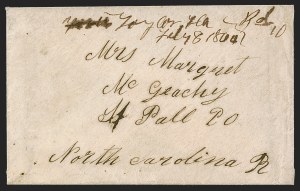 Taylor, Fla Pd 10
Feby 8 1864
Mrs Margret
Mc Geachy
St Pall PO
North Carolina